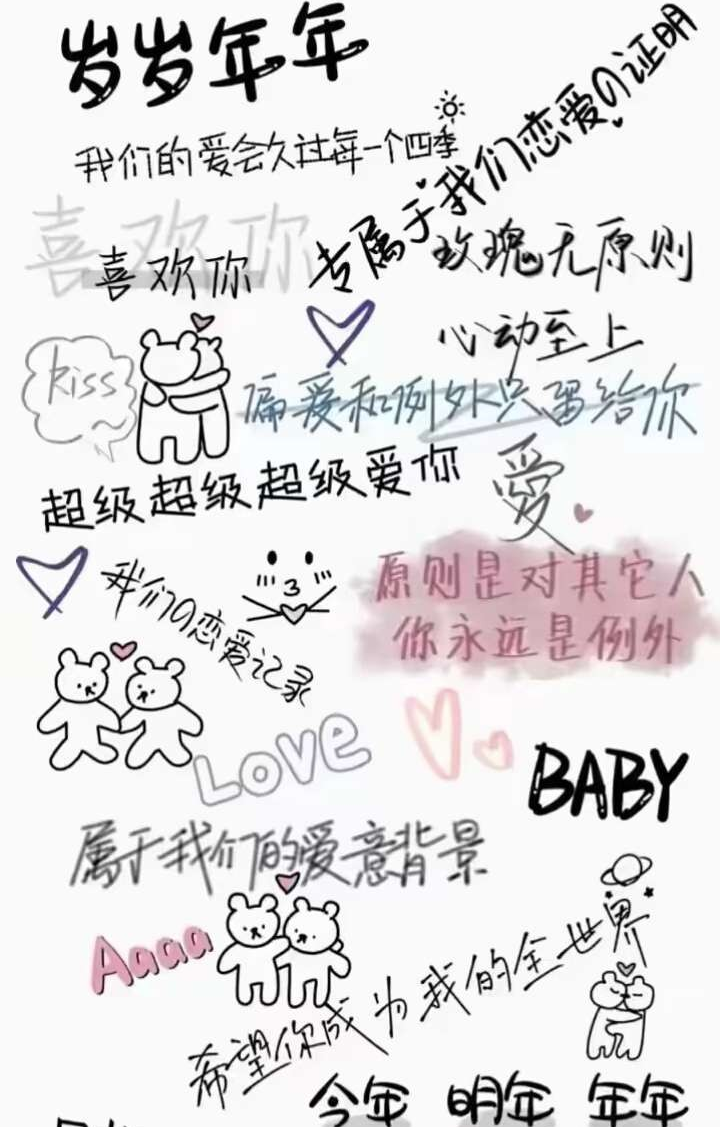 岁岁年年
我们的爱会久过每一个四季
专属于我们恋爱の证明
喜欢你
喜欢你
玫瑰无原则
心动至上
kiss
偏爱和例外只留给你
超级超级超级爱你
愛
我们の恋爱记录
原则是对其它人
你永远是例外
LOVE
BABY
属于我们的爱意背景
Aaaa
希望你成为我的全世界
今年 明年 年年